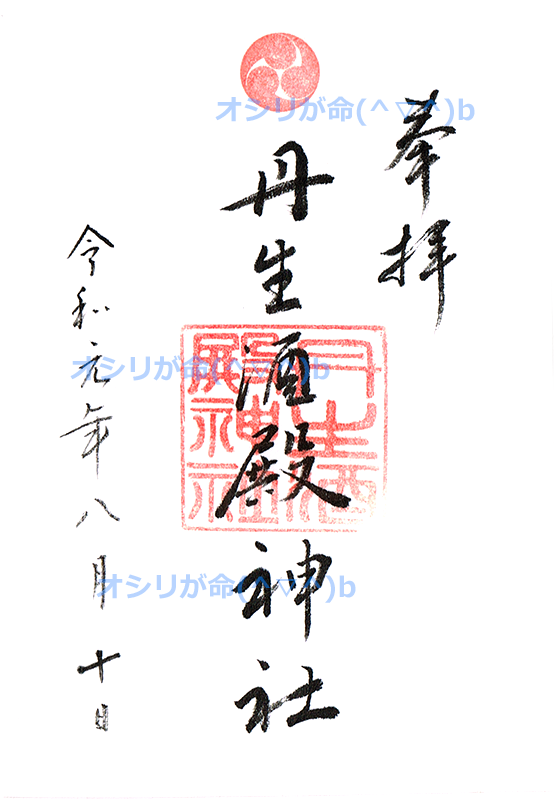 奉拝
丹生酒殿神社
令和元年八月十日
オシリが命(^▽^)b
オシリが命(^▽^)b
オシリが命(^▽^)b